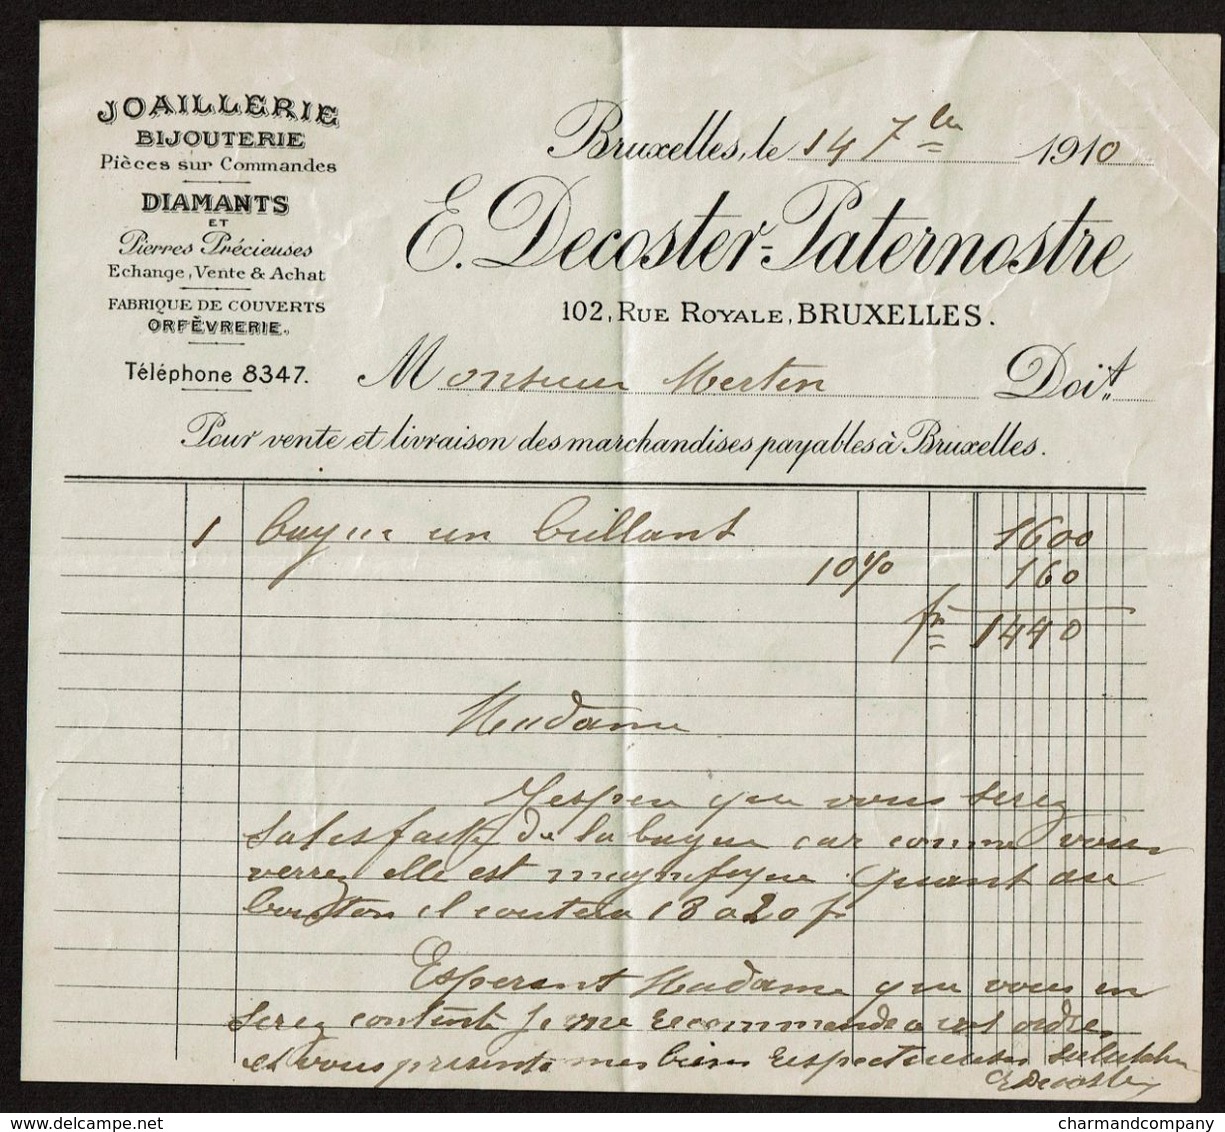 JOAILLERIE
BIJOUTERIE
Pièces sur Commandes
DIAMANTS
ET
Pierres Précieuses
Echange, Vente & Achat
FABRIQUE DE COUVERTS
ORFÈVRERIE.
Téléphone 8347.
Bruxelles, le 14 7bre 1910
E. Decoster-Paternostre
102, RUE ROYALE, BRUXELLES.
Monsieur Merten Doit
Pour vente et livraison des marchandises payables à Bruxelles.
1 bague un brillant 1600
10% 160
fr 1440
Madame
J'espere que vous serez
satisfaite de la bague car comme vous
verrez elle est magnifique. Quant au
bouton il coutera 18 a 20 fr
Esperant Madame que vous en
serez contente je me recommande a vos ordres
et vous presente mes bien respectueuses salutations
E Decoster
charmandcompany